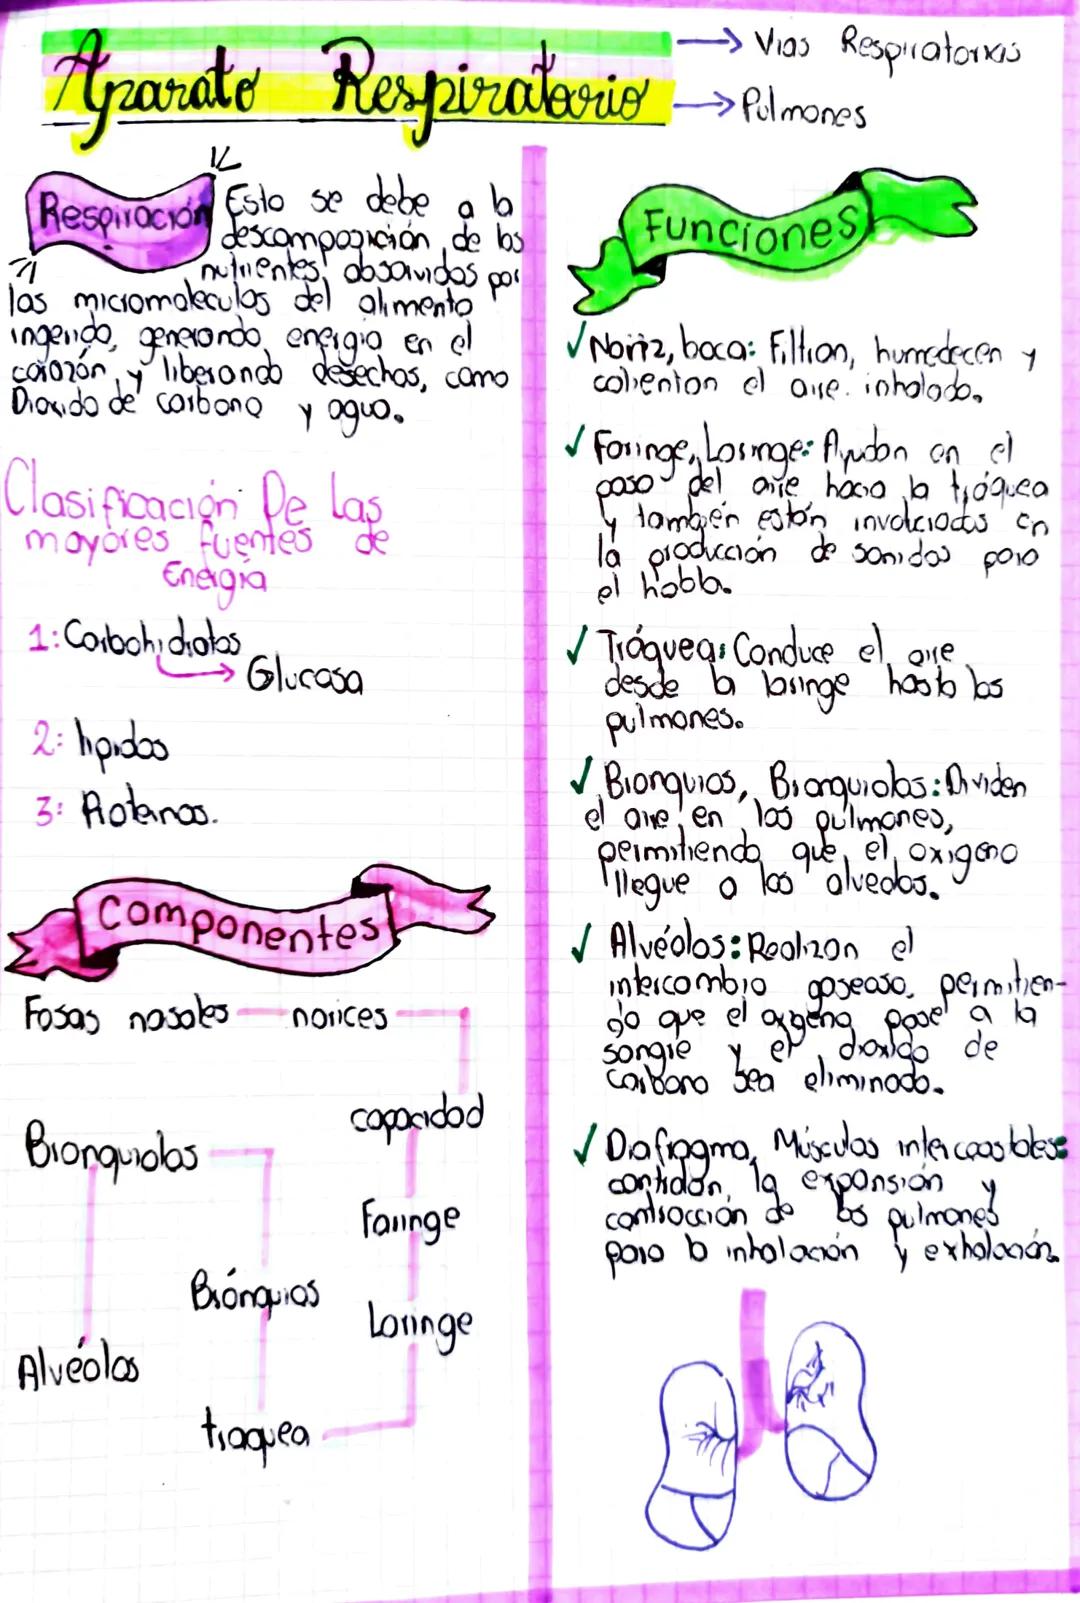 Aparato Respiratorio
→ Vias Respiratorias
→ Pulmones
Respiración
Esto se debe a la
descomposición de los
nutrientes, absorvidos por
las micromoleculas del alimento
ingerido, generando energia en el
corazón y liberando desechos, como
Dioxido de carbono y agua.
Clasificación De Las
mayores fuentes de
Energía
1: Carbohidratos
→ Glucosa
2: lipidos
3: Proteinas.
Componentes
Fosas nasales narices
capacidad
Bronquiolos
Faringe
Brónquios
Laringe
Alvéolos
traquea
Funciones
✓ Nariz, boca: Filtran, humedecen y
calientan el aire inhalado.
✓ Faringe, Laringe: Ayudan en el
paso del aire hacia la tráquea
y también están involcrados en
la producción de sonidos para
el habla.
✓ Tráquea: Conduce el aire
desde la laringe hasta los
pulmones.
✓ Bronquios, Bronquiolos: Dividen
el aire en los pulmones,
permitiendo que el oxigeno
llegue a los alveolos.
✓ Alvéolos: Realizan el
intercambio gaseoso, permitien-
do que el oxigeno pase a la
sangre y el dioxido de
Carbono sea eliminado.
✓ Diafragma, Músculos intercoostales:
la expansión y
contracción de los pulmones
para la inhalación y exhalación.